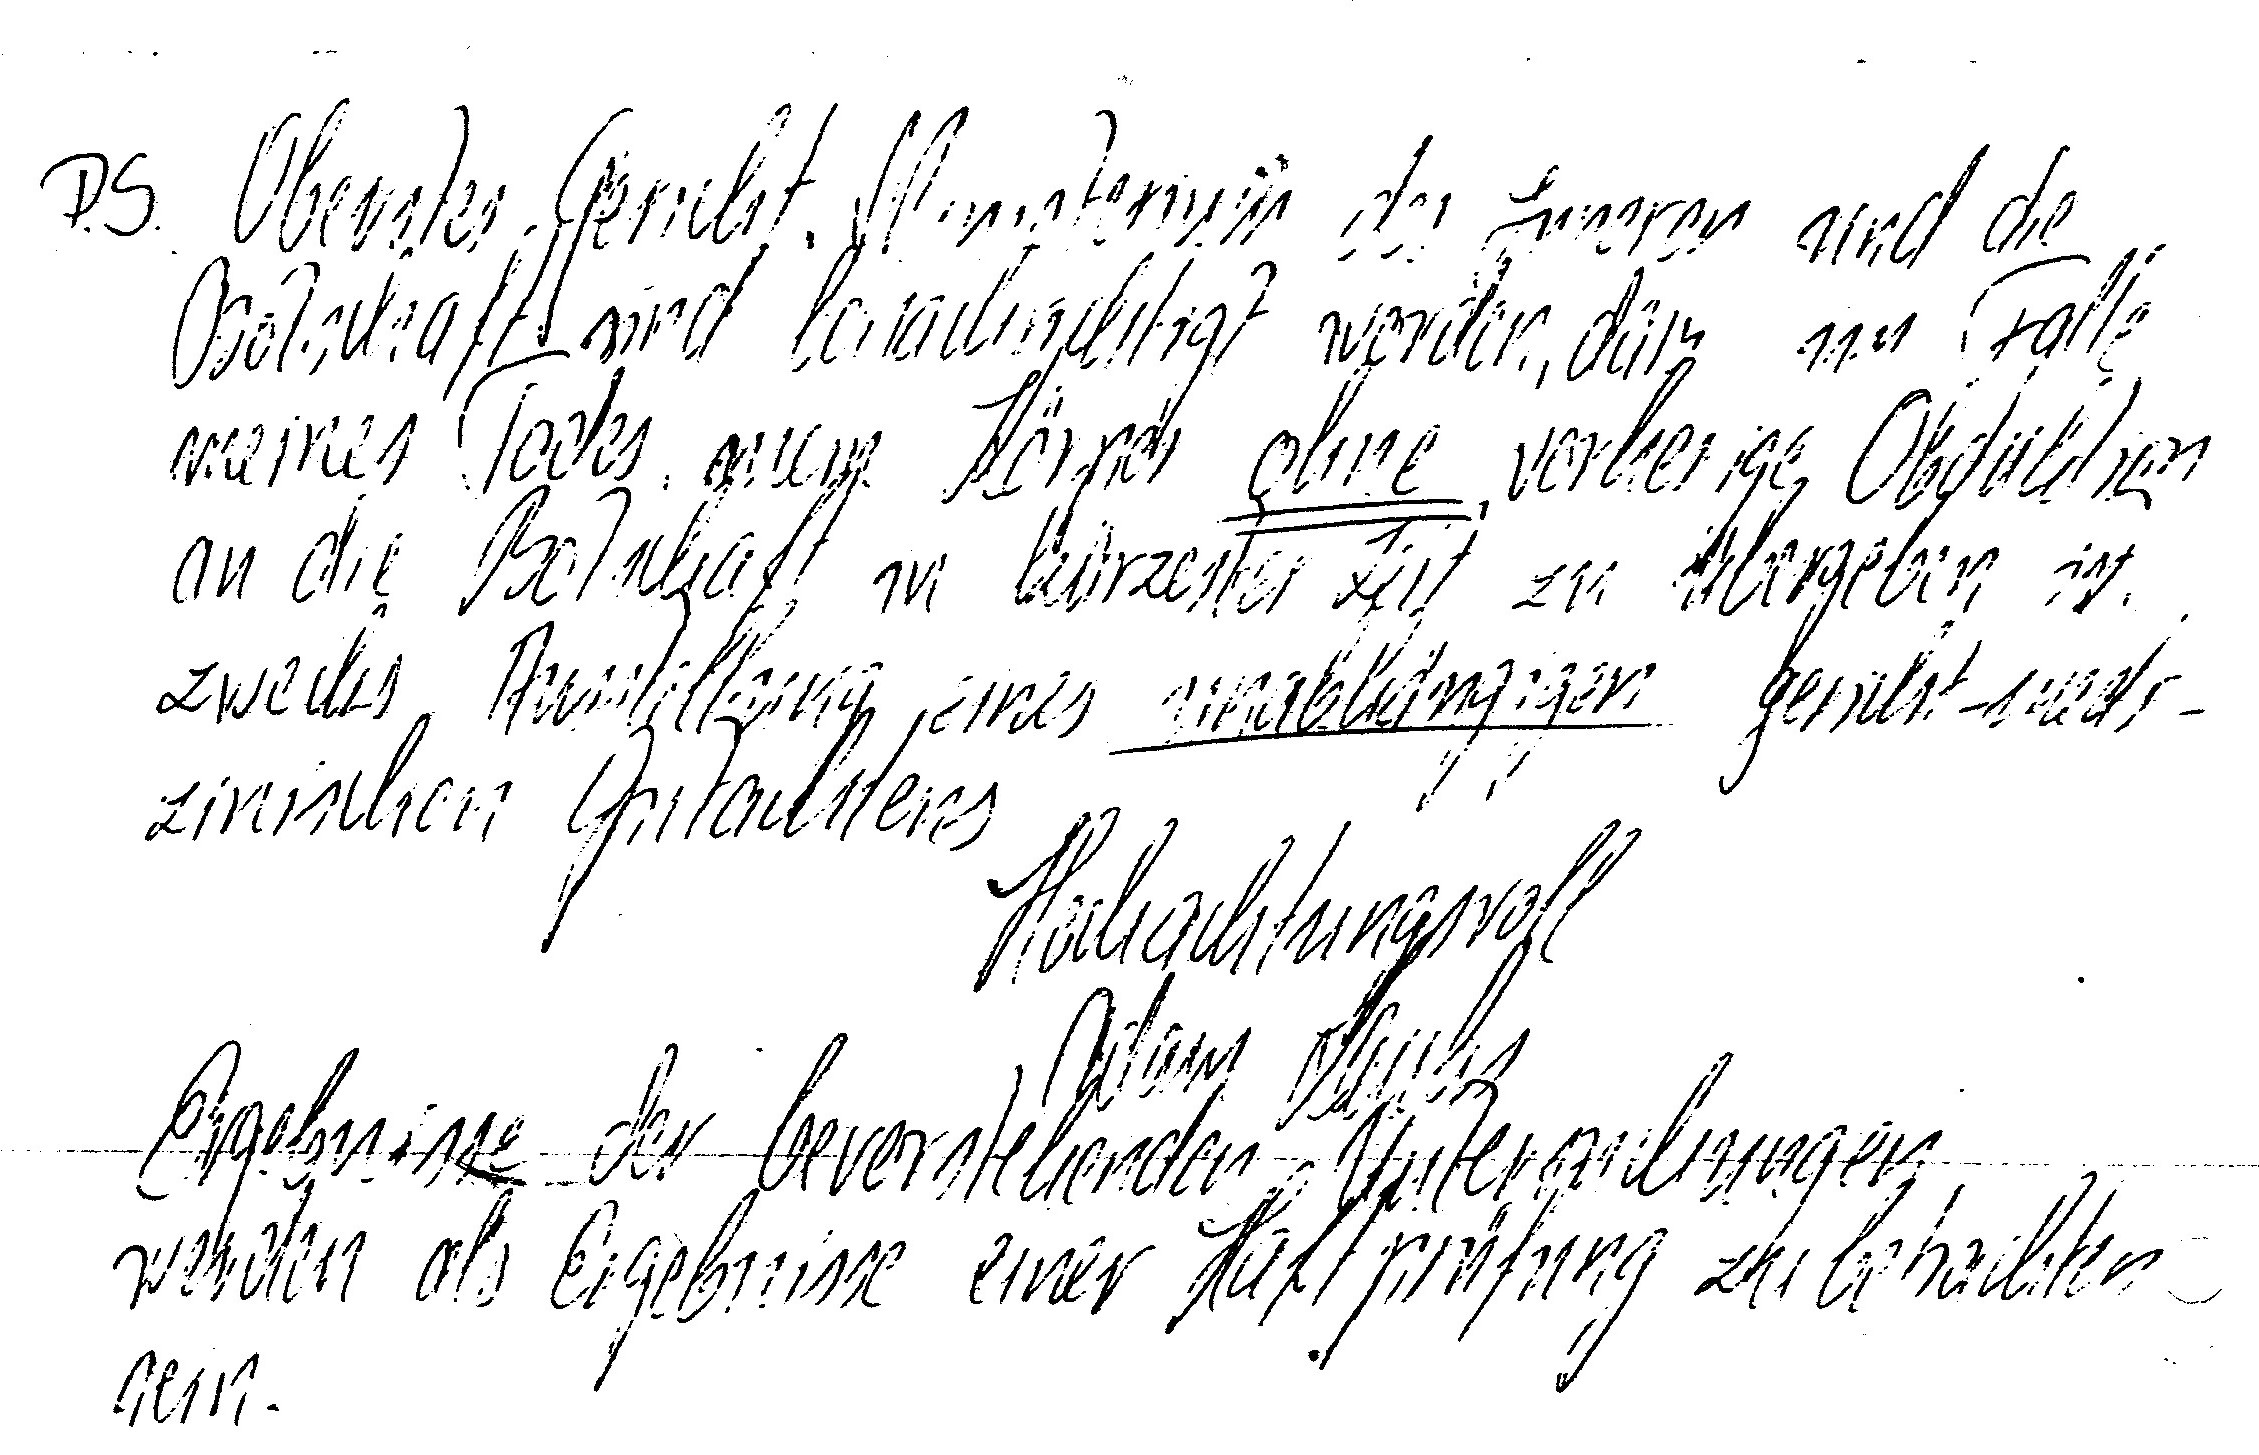 P.S. Oberstes Gericht, Ministerium des Inneren und die
Botschaft sind benachrichtigt worden, dass im Falle
meines Todes, mein Körper ohne vorherige Obduktion
an die Botschaft in kürzester Zeit zu übergeben ist.
zwecks Ausstellung eines unabhängigen gericht-medi-
zinischen Gutachtens
Hochachtungsvoll
Adam
Ergebnisse der beverstehenden Untersuchungen
werden als Ergebnisse einer Haftprüfung zu betrachten
sein.